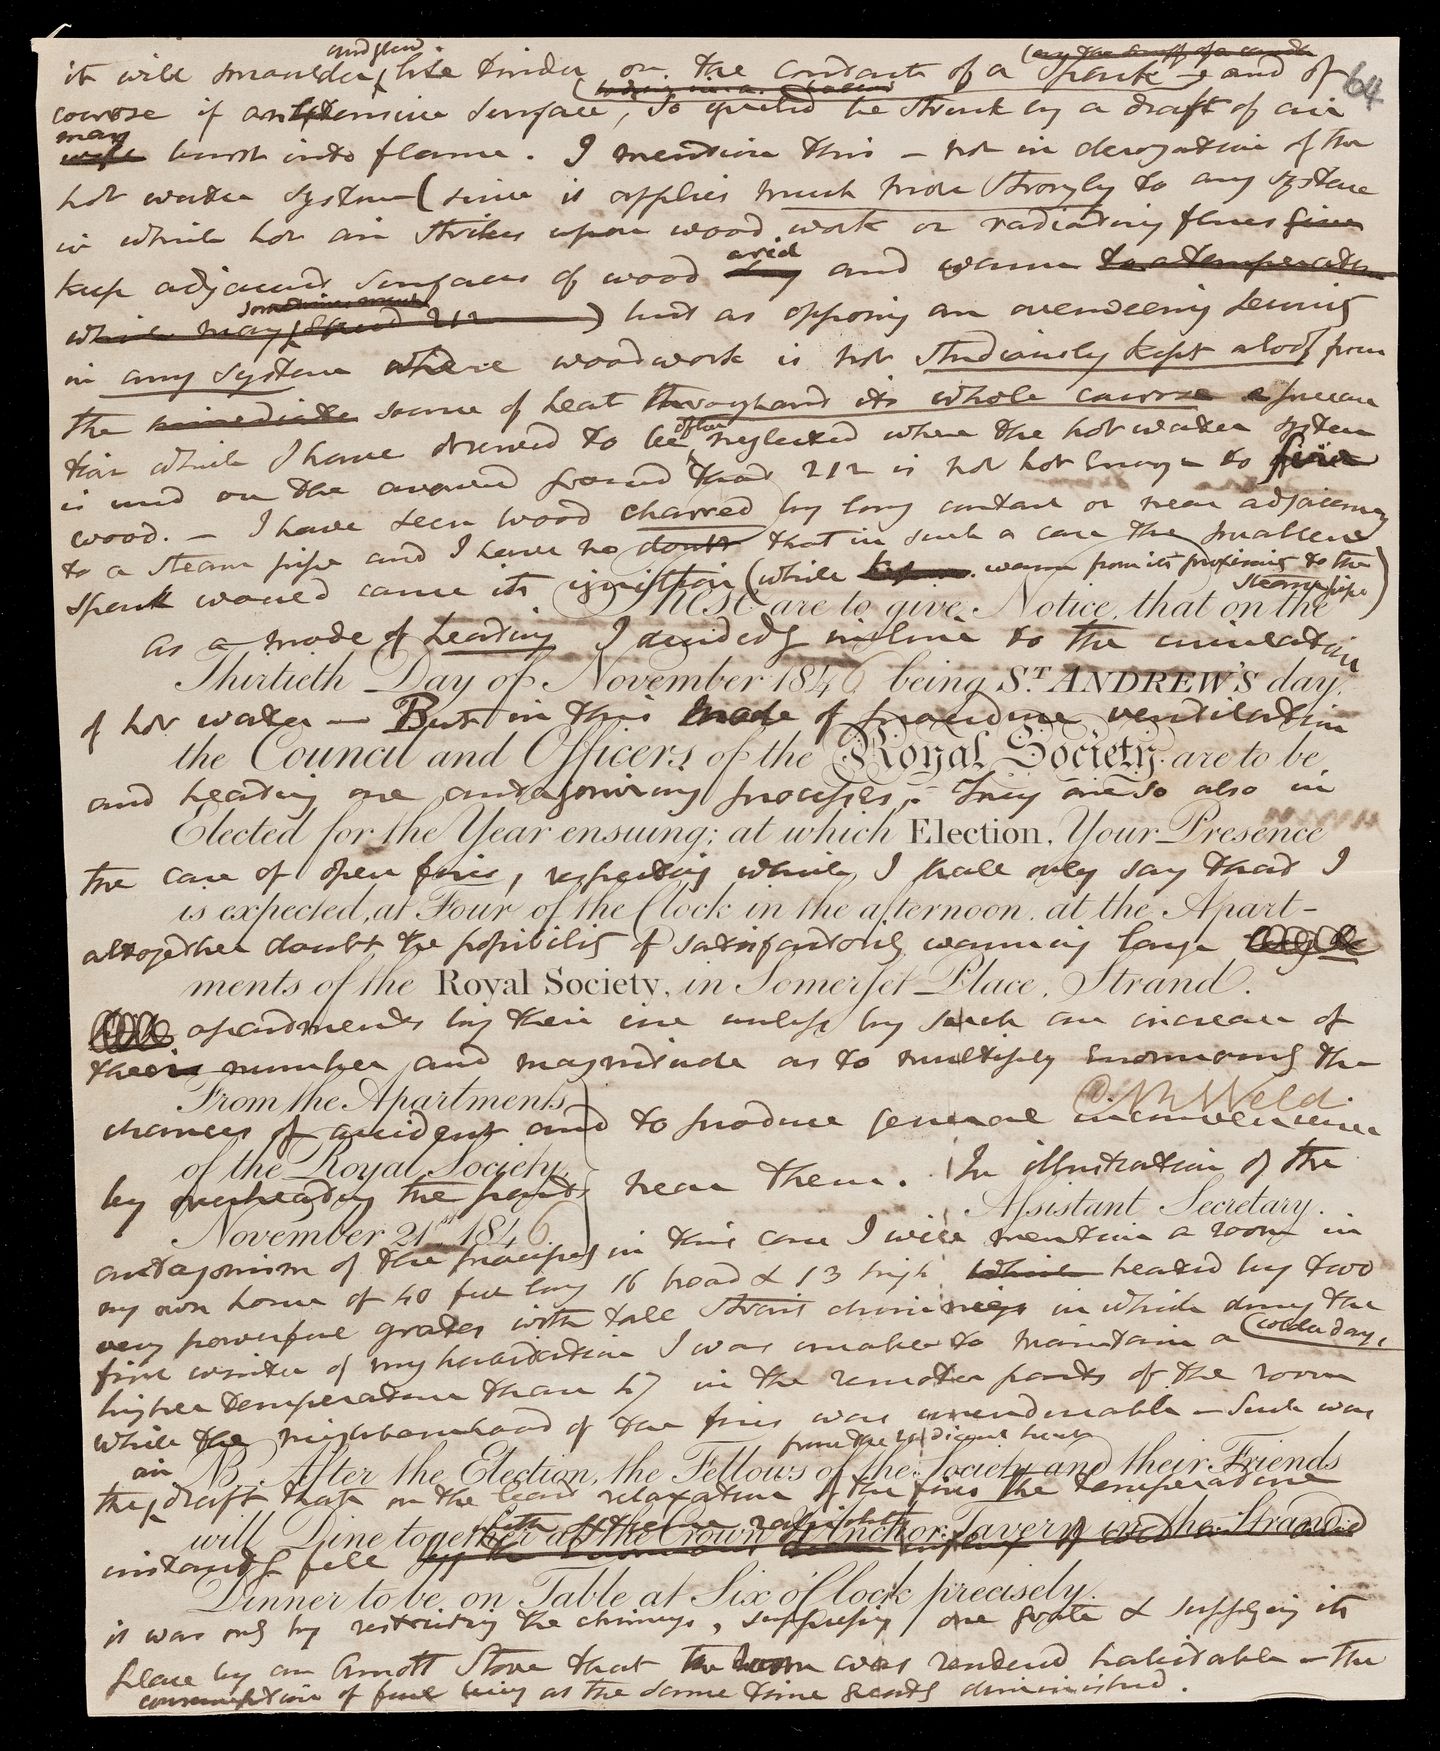 and glow.
it will smoulder like tinder on the contact of a spark and of 64
course if an extensive surface, so ignited be struck by a draft of air
may
burst into flame. I mention this - not in derogation of the
hot water system (since it applies much more strongly to any system
in which hot air strikes upon wood work or radiating flues
arid
keep adjacent surfaces of wood and warm to a temperature
sometimes
which may 212 ) but as opposing an overweening security
in any system where woodwork is not studiously kept aloof from
the immediate source of heat throughout its whole course a precau
often
tion which I have observed to be neglected where the hot water system
is used on the avowed ground that 212 is not hot enough to fire
wood. - I have seen wood charred by long contact or near adjacency
to a steam pipe and I have no doubt that in such a case the smallest
spark would cause its ignition (while warm from its proximity to the
steam pipe)
These are to give Notice, that on the
as a mode of heating I decidedly incline to the circulation
Thirtieth Day of November 1846 being St. ANDREW'S day,
of hot water - But in this mode of procedure ventilation
the Council and Officers of the Royal Society are to be
and heating are antagonising processes. They are so also in
Elected for the Year ensuing; at which Election, Your Presence
the case of open fires, respecting which I shall only say that I
is expected, at Four of the Clock in the afternoon, at the Apart-
altogether doubt the possibility of satisfactorily warming large
ments of the Royal Society, in Somerset Place, Strand.
apartments by their use unless by such an increase of
their number and magnitude as to multiply enormously the
From the Apartments
Weld
chances of accident and to produce general inconvenience
of the Royal Society.
by overheating the parts near them. In illustration of the
Assistant Secretary.
November 21st 1846
antagonism of the principles in this case I will mention a room in
my own house of 40 feet long 16 broad & 13 high which heated by two
very powerful grates with tall strait chimneys in which during the
first winter of my habitation I was unable to maintain a (cold days,
higher temperature than 47 in the remoter parts of the room
while the neighbourhood of the fires was unendurable - Such was
from the radiant heat
NB. After the Election, the Fellows of the Society and their Friends
air
the draft that on the least relaxation of the fires the temperature
will Dine together at the Crown & Anchor Tavern in the Strand
instantly fell
Dinner to be on Table at Six o'Clock precisely.
it was only by restricting the chimneys, suppressing one grate & supplying its
place by an Arnott Stove that the room was rendered habitable - the
consumption of fuel being at the same time greatly diminished.